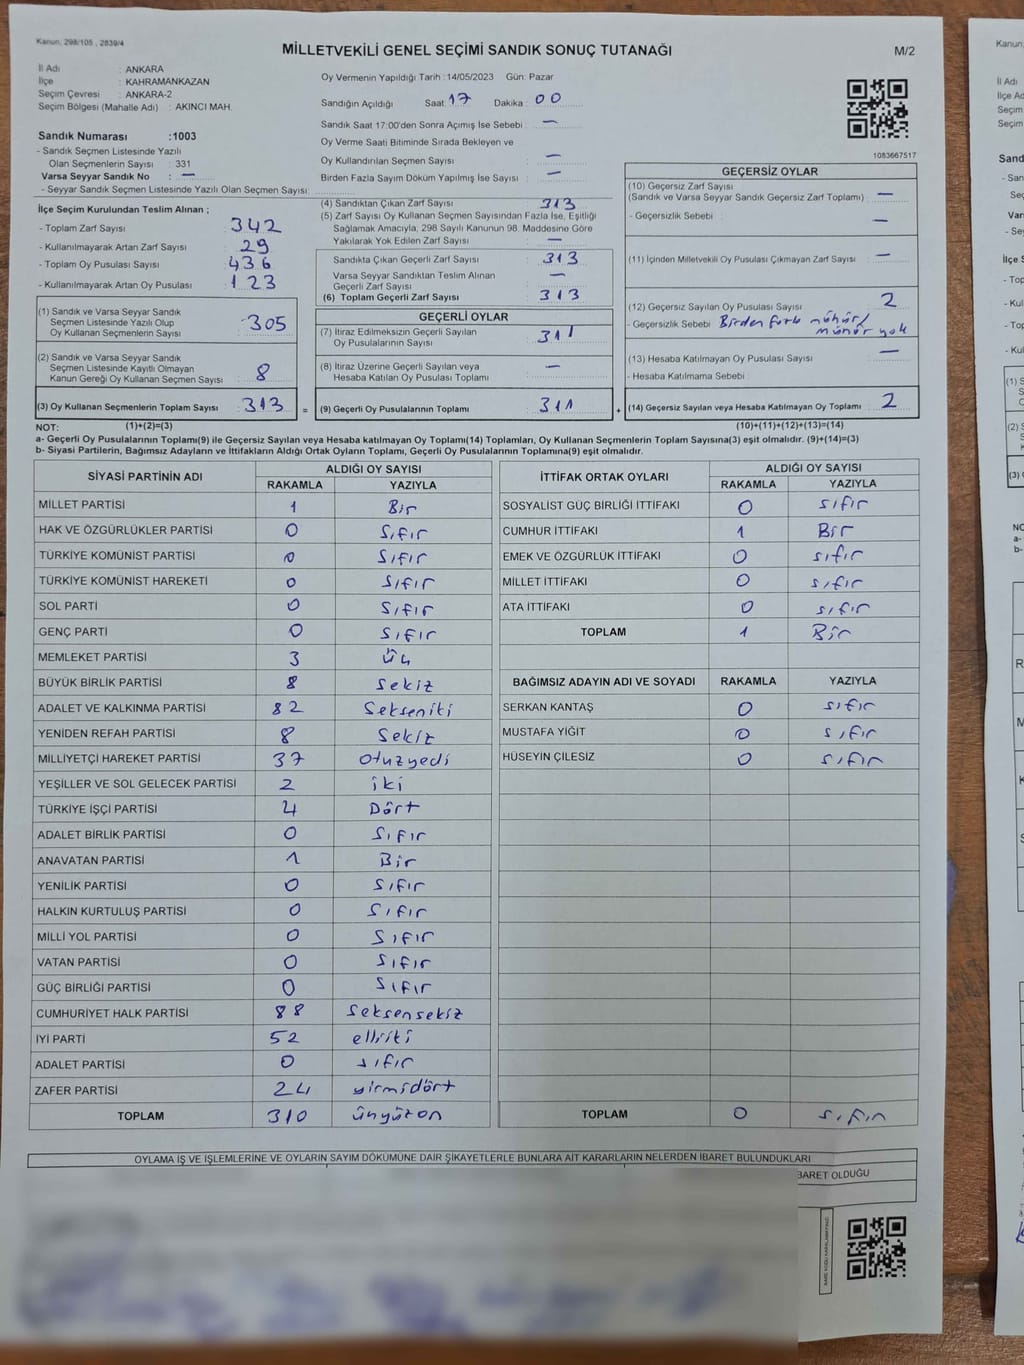 Kanun: 298/105 , 2839/4
MİLLETVEKİLİ GENEL SEÇİMİ SANDIK SONUÇ TUTANAĞI
M/2
İl Adı : ANKARA
İlçe : KAHRAMANKAZAN
Seçim Çevresi : ANKARA-2
Seçim Bölgesi (Mahalle Adı) : AKINCI MAH.
Sandık Numarası :1003
- Sandık Seçmen Listesinde Yazılı
Olan Seçmenlerin Sayısı : 331
Varsa Seyyar Sandık No : —
- Seyyar Sandık Seçmen Listesinde Yazılı Olan Seçmen Sayısı:
Oy Vermenin Yapıldığı Tarih :14/05/2023 Gün: Pazar
Sandığın Açıldığı Saat: 17 Dakika : 00
Sandık Saat 17:00'den Sonra Açımış İse Sebebi : —
Oy Verme Saati Bitiminde Sırada Bekleyen ve
Oy Kullandırılan Seçmen Sayısı : —
Birden Fazla Sayım Döküm Yapılmış İse Sayısı : —
1083667517
İlçe Seçim Kurulundan Teslim Alınan ;
- Toplam Zarf Sayısı : 342
- Kullanılmayarak Artan Zarf Sayısı : 29
- Toplam Oy Pusulası Sayısı : 436
- Kullanılmayarak Artan Oy Pusulası : 123
(1) Sandık ve Varsa Seyyar Sandık
Seçmen Listesinde Yazılı Olup
Oy Kullanan Seçmenlerin Sayısı : 305
(2) Sandık ve Varsa Seyyar Sandık
Seçmen Listesinde Kayıtlı Olmayan
Kanun Gereği Oy Kullanan Seçmen Sayısı : 8
(3) Oy Kullanan Seçmenlerin Toplam Sayısı : 313
(4) Sandıktan Çıkan Zarf Sayısı : 313
(5) Zarf Sayısı Oy Kullanan Seçmen Sayısından Fazla İse, Eşitliği
Sağlamak Amacıyla, 298 Sayılı Kanunun 98. Maddesine Göre
Yakılarak Yok Edilen Zarf Sayısı : —
Sandıkta Çıkan Geçerli Zarf Sayısı : 313
Varsa Seyyar Sandıktan Teslim Alınan
Geçerli Zarf Sayısı : —
(6) Toplam Geçerli Zarf Sayısı : 313
GEÇERLİ OYLAR
(7) İtiraz Edilmeksizin Geçerli Sayılan
Oy Pusulalarının Sayısı : 311
(8) İtiraz Üzerine Geçerli Sayılan veya
Hesaba Katılan Oy Pusulası Toplamı : —
= (9) Geçerli Oy Pusulalarının Toplamı : 311
GEÇERSİZ OYLAR
(10) Geçersiz Zarf Sayısı
(Sandık ve Varsa Seyyar Sandık Geçersiz Zarf Toplamı) : —
- Geçersizlik Sebebi : —
(11) İçinden Milletvekili Oy Pusulası Çıkmayan Zarf Sayısı : —
(12) Geçersiz Sayılan Oy Pusulası Sayısı : 2
- Geçersizlik Sebebi : Birden fazla mühür/
mühür yok
(13) Hesaba Katılmayan Oy Pusulası Sayısı : —
- Hesaba Katılmama Sebebi :
+ (14) Geçersiz Sayılan veya Hesaba Katılmayan Oy Toplamı : 2
NOT: (1)+(2)=(3) (10)+(11)+(12)+(13)=(14)
a- Geçerli Oy Pusulalarının Toplamı(9) ile Geçersiz Sayılan veya Hesaba katılmayan Oy Toplamı(14) Toplamları, Oy Kullanan Seçmenlerin Toplam Sayısına(3) eşit olmalıdır. (9)+(14)=(3)
b- Siyasi Partilerin, Bağımsız Adayların ve İttifakların Aldığı Ortak Oyların Toplamı, Geçerli Oy Pusulalarının Toplamına(9) eşit olmalıdır.
SİYASİ PARTİNİN ADI ALDIĞI OY SAYISI
RAKAMLA YAZIYLA
MİLLET PARTİSİ 1 Bir
HAK VE ÖZGÜRLÜKLER PARTİSİ 0 Sıfır
TÜRKİYE KOMÜNİST PARTİSİ 0 Sıfır
TÜRKİYE KOMÜNİST HAREKETİ 0 Sıfır
SOL PARTİ 0 Sıfır
GENÇ PARTİ 0 Sıfır
MEMLEKET PARTİSİ 3 Üç
BÜYÜK BİRLİK PARTİSİ 8 Sekiz
ADALET VE KALKINMA PARTİSİ 82 Sekseniki
YENİDEN REFAH PARTİSİ 8 Sekiz
MİLLİYETÇİ HAREKET PARTİSİ 37 Otuzyedi
YEŞİLLER VE SOL GELECEK PARTİSİ 2 iki
TÜRKİYE İŞÇİ PARTİSİ 4 Dört
ADALET BİRLİK PARTİSİ 0 Sıfır
ANAVATAN PARTİSİ 1 Bir
YENİLİK PARTİSİ 0 Sıfır
HALKIN KURTULUŞ PARTİSİ 0 Sıfır
MİLLİ YOL PARTİSİ 0 Sıfır
VATAN PARTİSİ 0 Sıfır
GÜÇ BİRLİĞİ PARTİSİ 0 Sıfır
CUMHURİYET HALK PARTİSİ 88 Seksensekiz
İYİ PARTİ 52 elliiki
ADALET PARTİSİ 0 sıfır
ZAFER PARTİSİ 24 yirmidört
TOPLAM 310 üçyüzon
İTTİFAK ORTAK OYLARI ALDIĞI OY SAYISI
RAKAMLA YAZIYLA
SOSYALİST GÜÇ BİRLİĞİ İTTİFAKI 0 sıfır
CUMHUR İTTİFAKI 1 Bir
EMEK VE ÖZGÜRLÜK İTTİFAKI 0 sıfır
MİLLET İTTİFAKI 0 sıfır
ATA İTTİFAKI 0 sıfır
TOPLAM 1 Bir
BAĞIMSIZ ADAYIN ADI VE SOYADI RAKAMLA YAZIYLA
SERKAN KANTAŞ 0 sıfır
MUSTAFA YİĞİT 0 sıfır
HÜSEYİN ÇİLESİZ 0 sıfır
TOPLAM 0 sıfır
OYLAMA İŞ VE İŞLEMLERİNE VE OYLARIN SAYIM DÖKÜMÜNE DAİR ŞİKAYETLERLE BUNLARA AİT KARARLARIN NELERDEN İBARET BULUNDUKLARI
BARET OLDUĞU
Kanun:
İl Adı
İlçe Ad
Seçim
Seçim
Sand